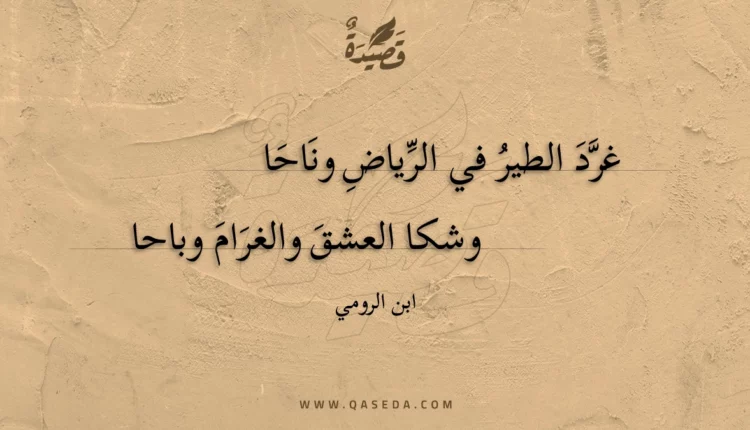 قَصِيْدَةٌ
غرَّدَ الطيرُ في الرِّياضِ ونَاحَا
وشكا العشقَ والغرَامَ وباحا
ابن الرومي
WWW.QASEDA.COM